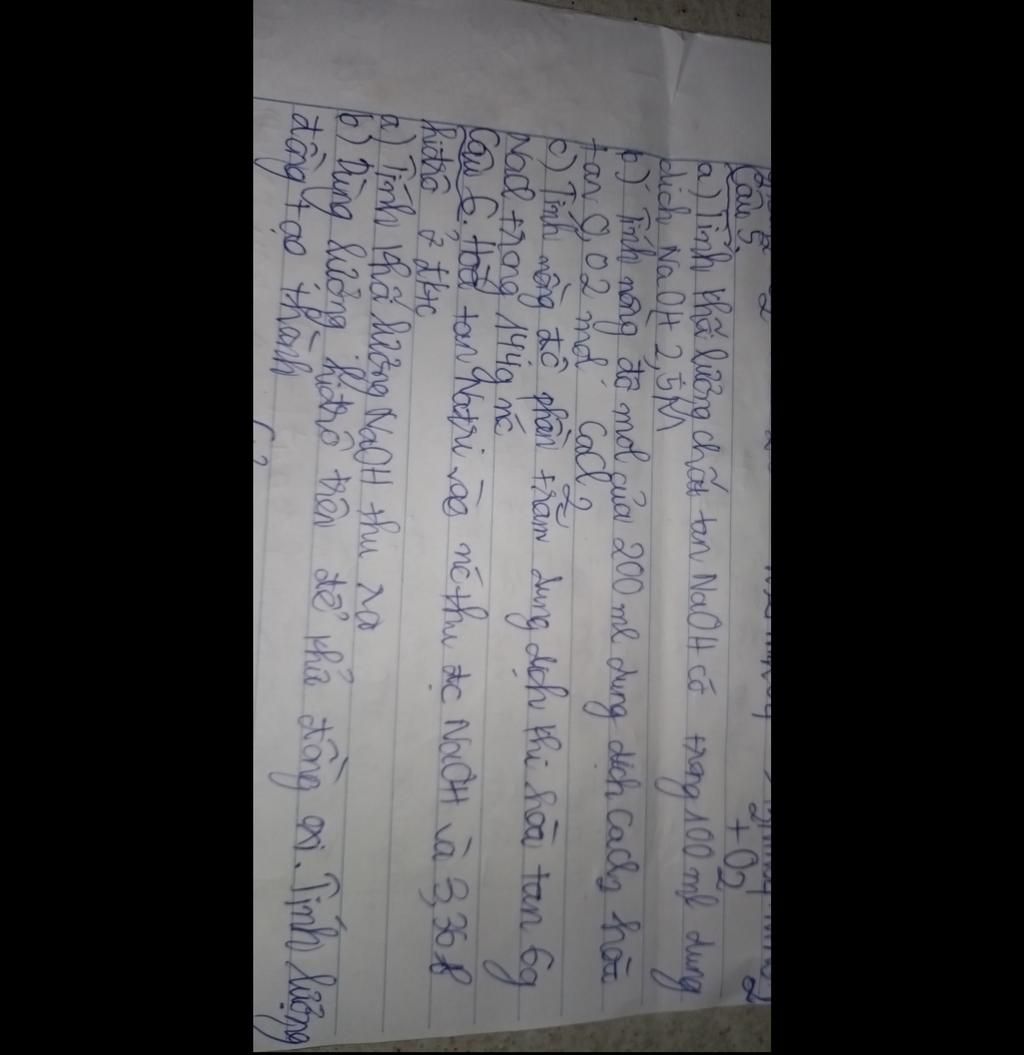 + O2
Câu 5.
a) Tính khối lượng chất tan NaOH có trong 100 ml dung
dịch NaOH 2,5M
b) Tính nồng độ mol của 200 ml dung dịch CaCl2 hòa
tan 0,02 mol CaCl2
c) Tính nồng độ phần trăm dung dịch khi hòa tan 6g
NaCl trong 144g nc
Câu 6. Hoà tan Natri vào nc thu đc NaOH và 3,36 l
hiđrô ở đktc
a) Tính khối lượng NaOH thu ra
b) Dùng lượng hiđrô trên để khử đồng oxi. Tính lượng
đồng tạo thành